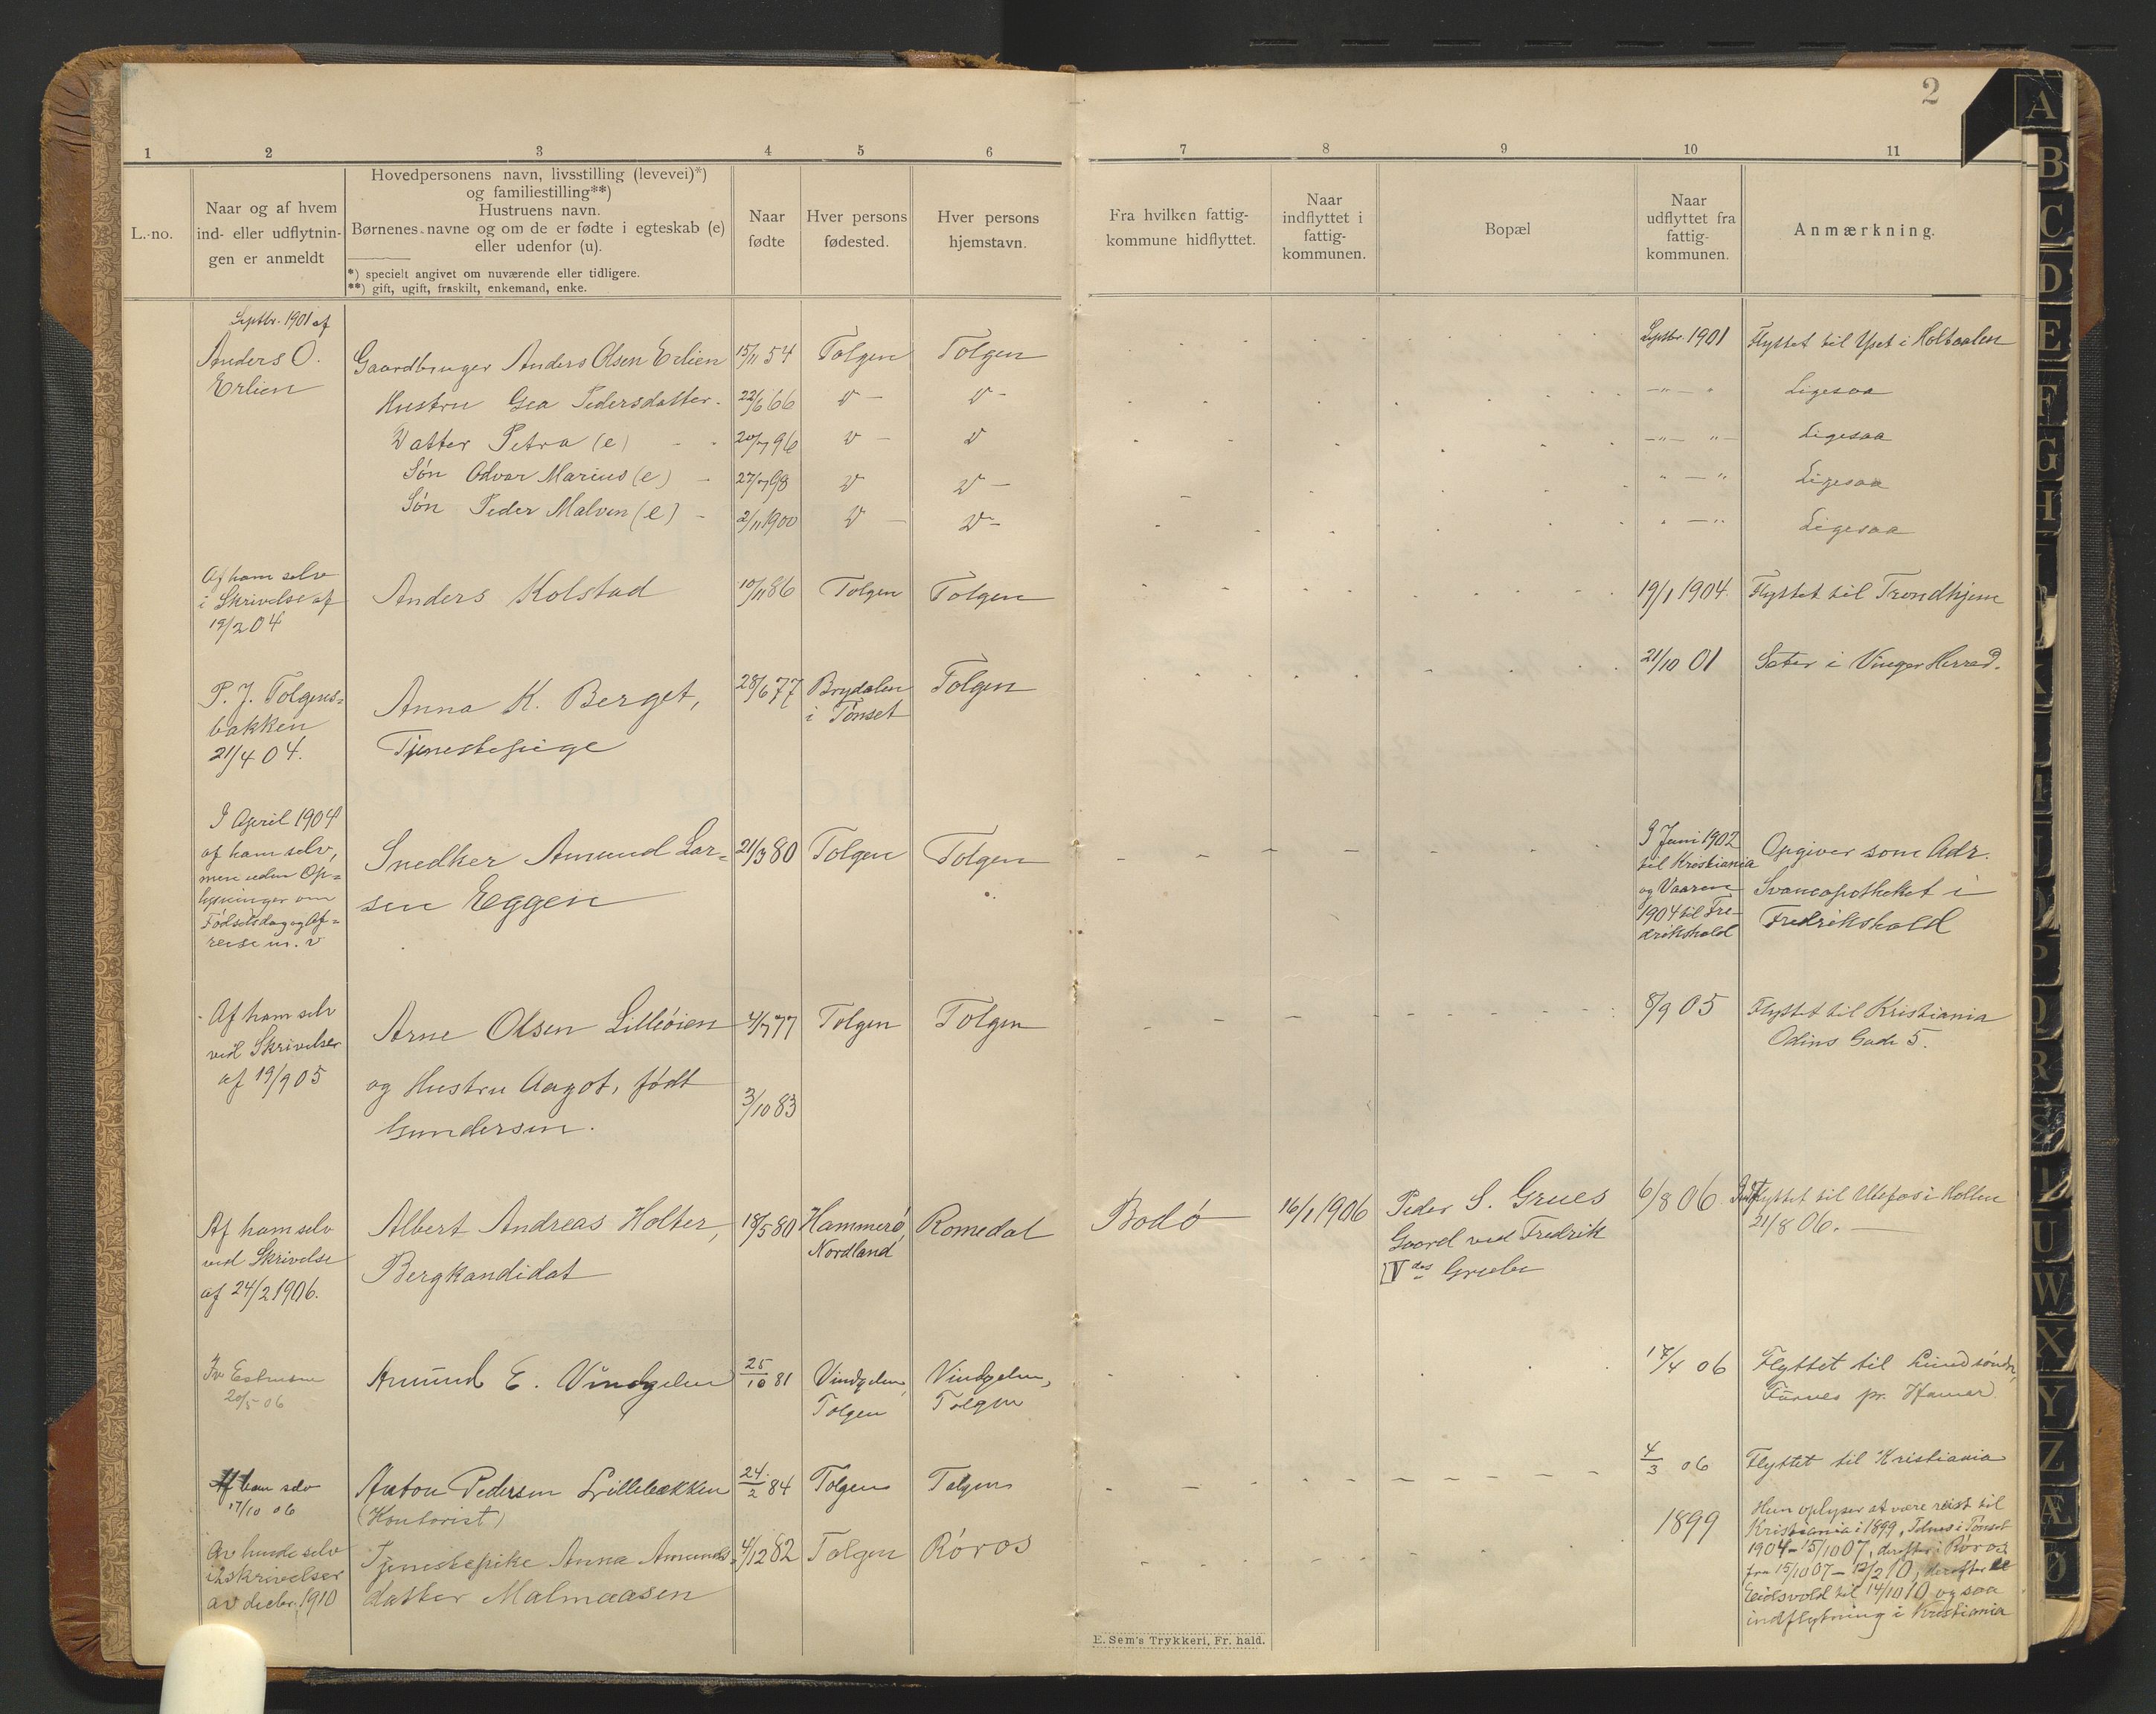 2
1 2 3 4 5 6 7 8 9 10 11
L.-no.
Naar og af hvem
ind- eller udflytnin-
gen er anmeldt
Hovedpersonens navn, livsstilling (levevei)*)
og familiestilling**)
Hustruens navn.
Børnenes navne og om de er fødte i egteskab (e)
eller udenfor (u).
*) specielt angivet om nuværende eller tidligere.
**) gift, ugift, fraskilt, enkemand, enke.
Naar
fødte
Hver persons
fødested.
Hver persons
hjemstavn.
Fra hvilken fattig-
kommune hidflyttet.
Naar
indflyttet i
fattig-
kommunen.
Bopæl
Naar
udflyttet fra
fattig-
kommunen.
Anmærkning.
Septbr. 1901 af
Anders O.
Erlien
Gaardbruger Anders Olsen Erlien 15/11 54 Tolgen Tolgen Septbr 1901 Flyttet til Yset i Holtaalen
Hustru Gea Pedersdatter 22/6 66 " " -"- " Ligesaa
Datter Petra (e) 20/7 96 " " -"- "- Ligesaa
Søn Odvar Marius (e) 27/7 98 " " " - " Ligesaa
Søn Peder Malvin (e) 2/11 1900 " " " - " Ligesaa
Af ham selv
i Skrivelse af
19/2 04
Anders Kolstad 10/11 86 Tolgen Tolgen 19/1 1904 Flyttet til Trondhjem
P. J. Tolgens-
bakken
21/4 04.
Anna K. Berget,
Tjenestepige
28/6 77 Brydalen
i Tønset
Tolgen 21/10 01 Sæter i Vinger Herred.
I April 1904
af ham selv,
men uden Op-
lysninger om
Fødselsdag og Af-
reise m. v
Snedker Amund Lar-
sen Eggen
21/3 80 Tolgen Tolgen
I Juni 1902
til Kristiania
og Vaaren
1904 til Fre-
drikshald
Opgiver som Adr.
Svaneapotheket i
Fredrikshald
Af ham selv
ved Skrivelse
af 19/9 05
Arne Olsen Lilleøien 4/7 77 Tolgen Tolgen
og Hustru Aagot, født
Gundersen.
3/10 83
8/9 05 Flyttet til Kristiania
Odins Gade 5.
Af ham selv
ved Skrivelse
af 24/2 1906.
Albert Andreas Holter,
Bergkandidat
18/5 80 Hammerø,
Nordland
Romedal Bodø 16/1 1906
Peder S. Grues
Gaard ved Fredrik
IV des Grube
6/8 06 Indflyttet til Ulefos i Hollen
21/8 06.
20/5 06
Amund E. Vindgelen 25/10 81 Vindgelen,
Tolgen
Vindgelen,
Tolgen
17/4 06 Flyttet til
Furnes pr. Hamar
Af ham selv
17/10 06
Anton Pedersen Lillebækken
(Kontorist)
24/2 84 Tolgen Tolgen 4/3 06 Flyttet til Kristiania
Av hende selv
i skrivelser
av decbr. 1910
Tjenestepike Anna Amunds-
datter Malmaasen
4/12 82 Tolgen Røros 1899
Hun oplyser at være reist til
Kristiania i 1899, i Tønset
1904 - 15/10 07, derefter i Røros
fra 15/10 07 - 12/2 10, derefter
Eidsvold til 14/10 10 og saa
indflytning i Kristiania
E. Sem's Trykkeri, Fr. hald.
A
B
C
D
E
F
G
H
P
Q
R
S
U
W
X
Y
Z
Æ
Ø